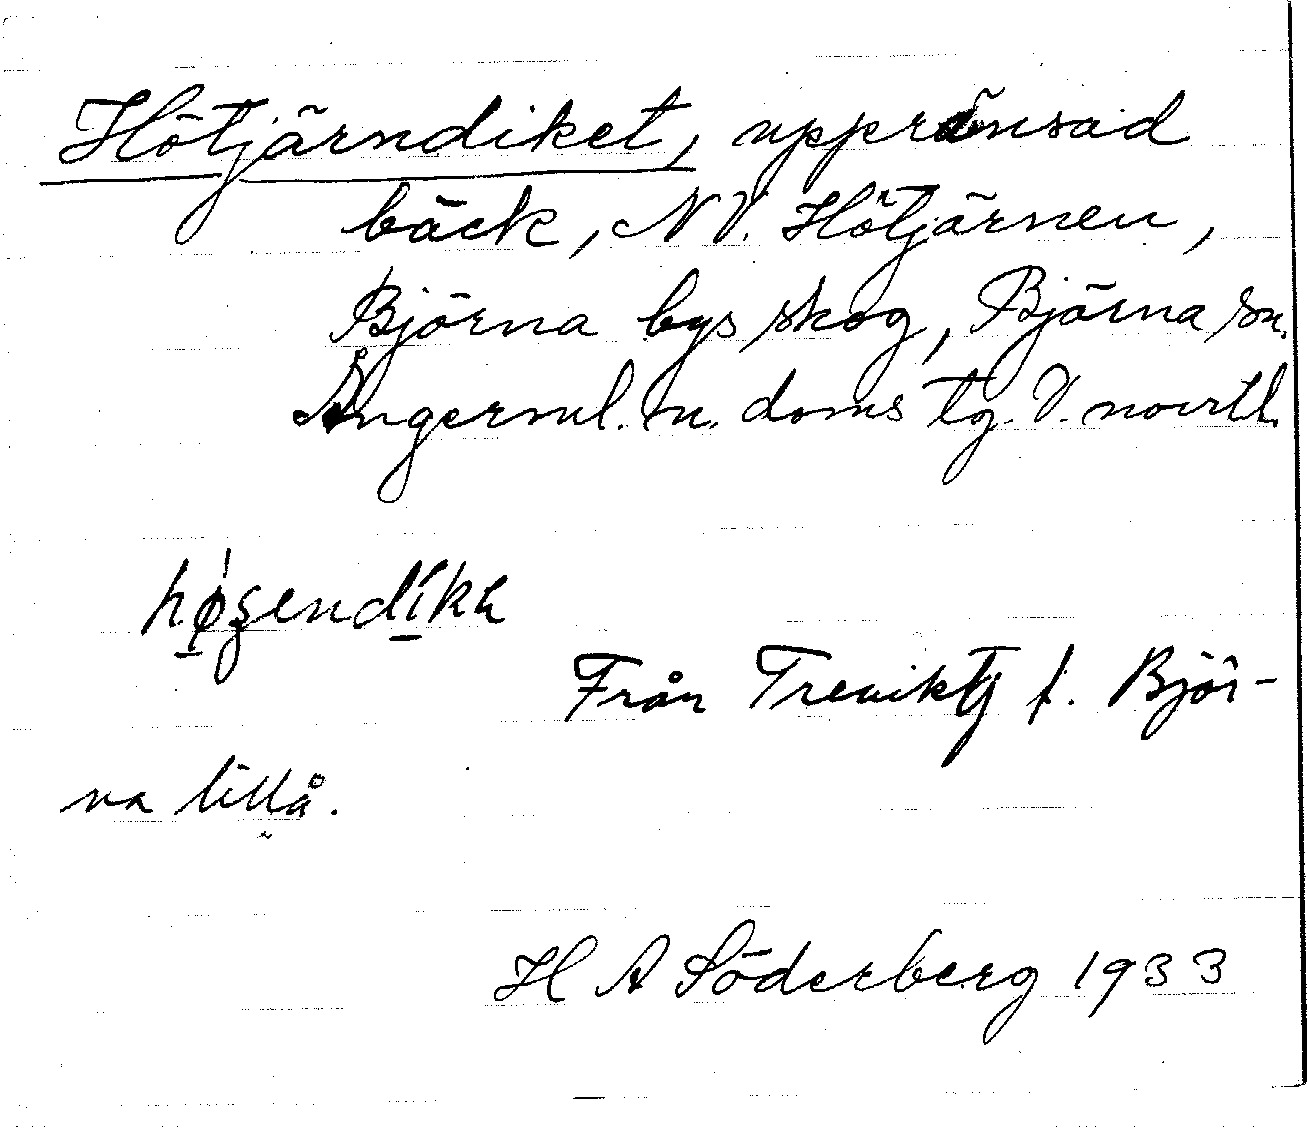 Hötjärndiket, upprensad
bäck, NV. Hötjärnen,
Björna bys skog, Björna sn.
Ångerml. n. doms tg. V. norrl.
Från f. Björ-
na lillå.
H A Söderberg 1933